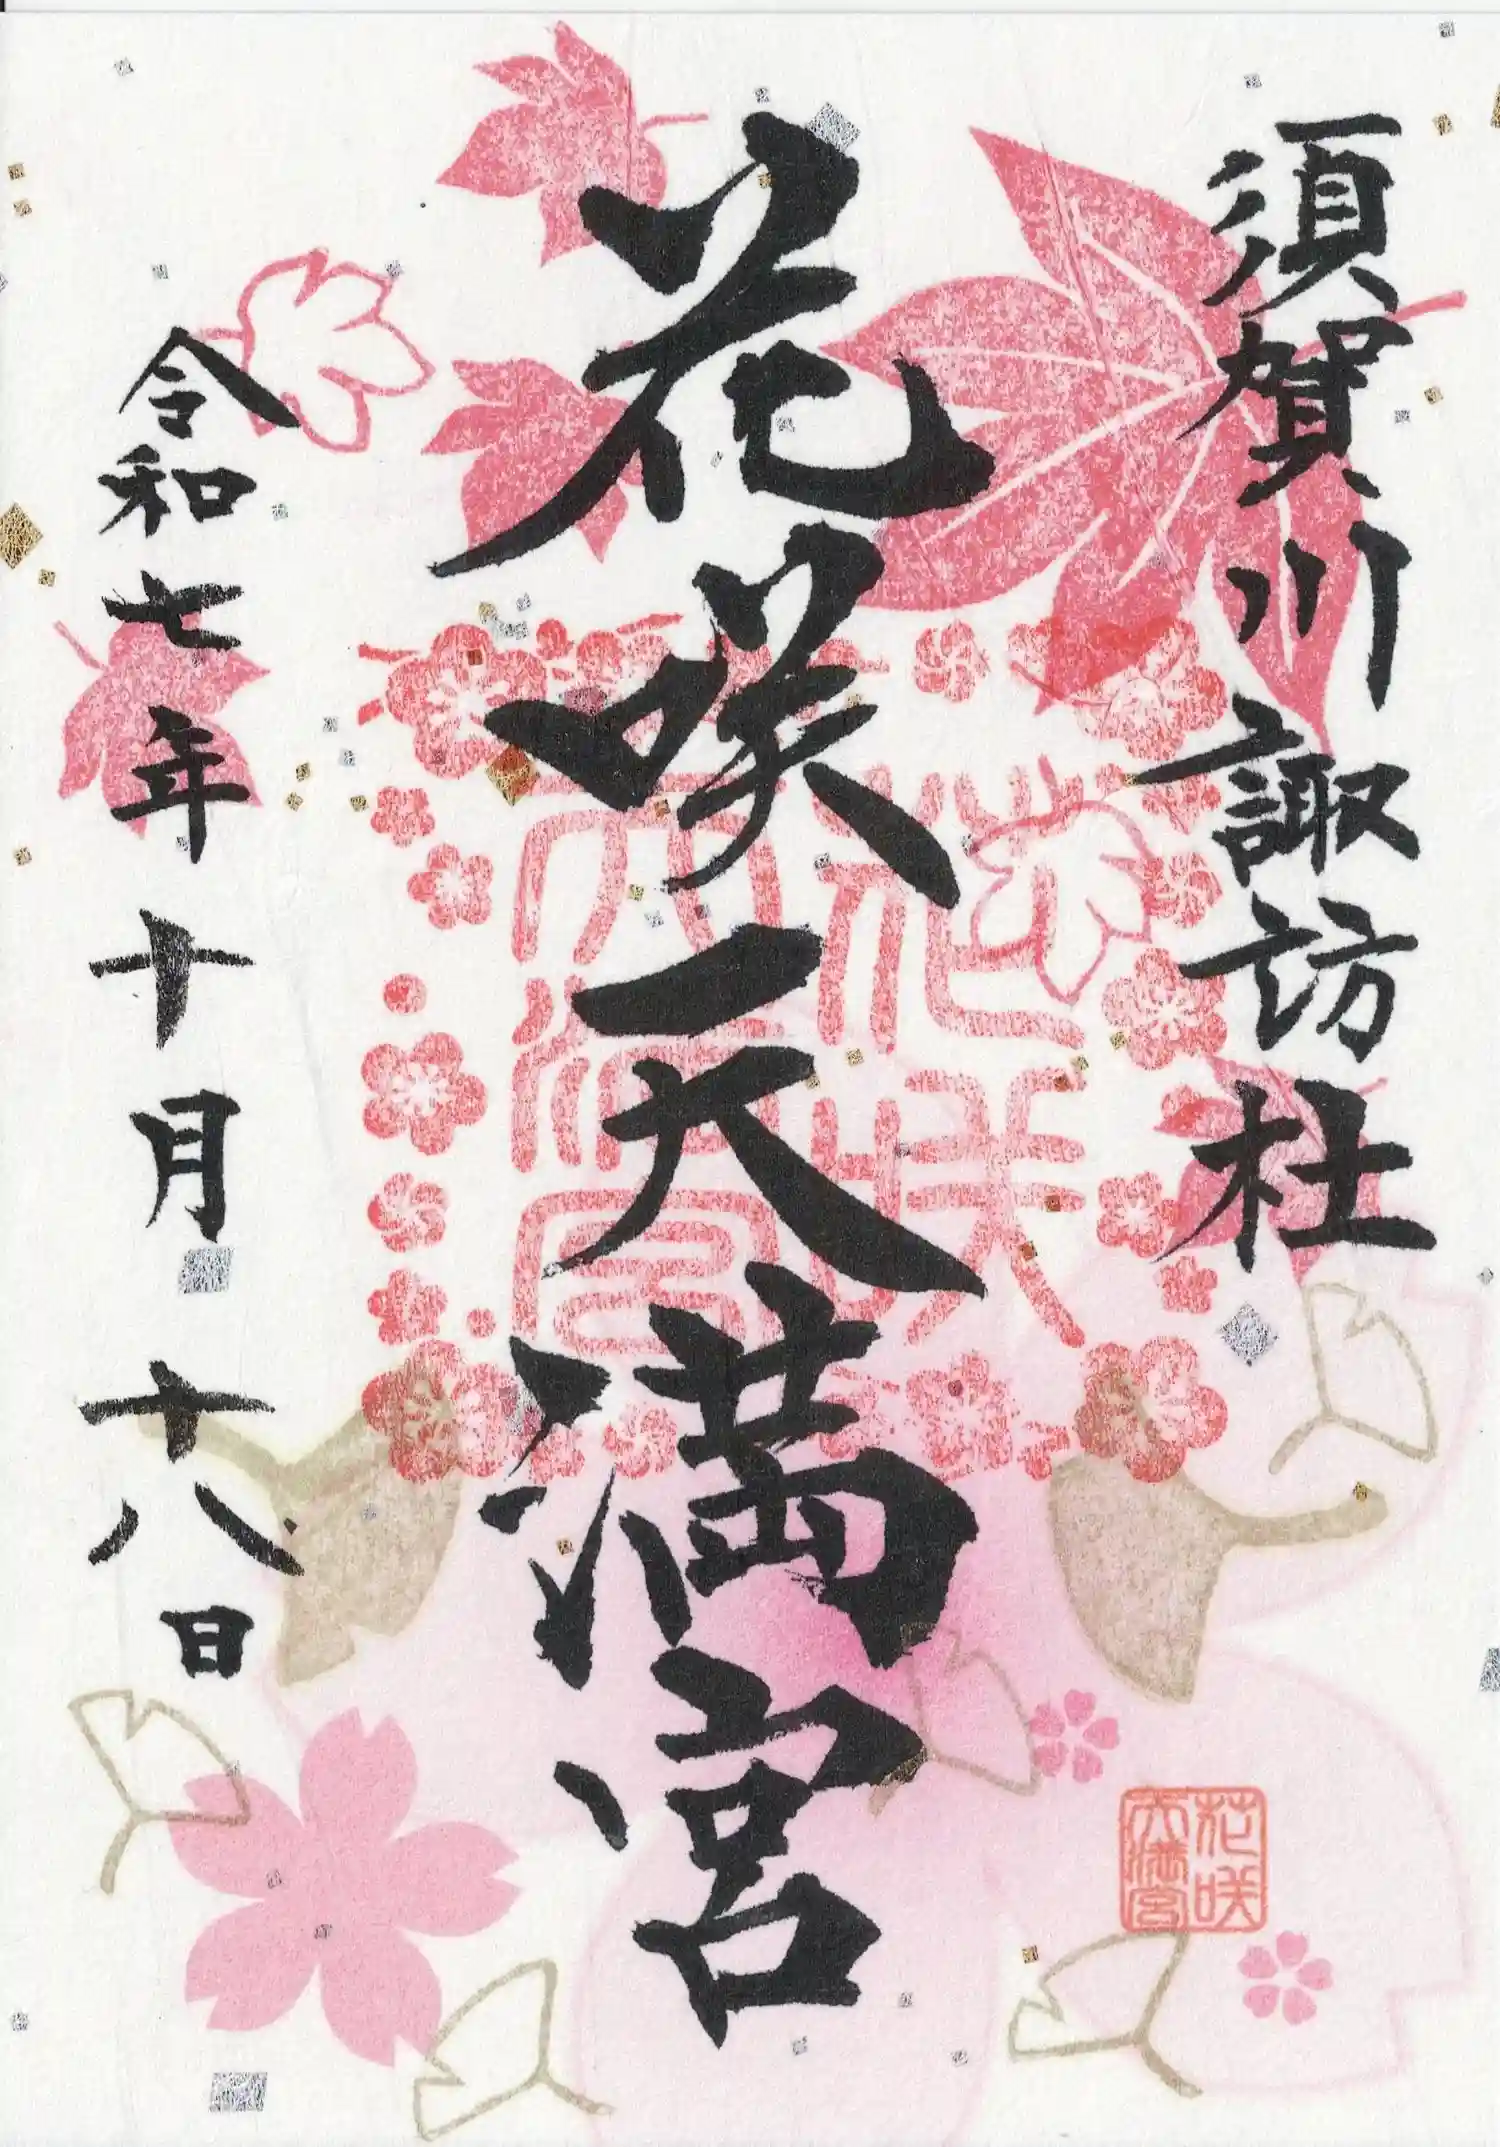 須賀川諏訪社
花咲天満宮
令和七年十月十八日
花咲
天満宮
花咲
天満宮